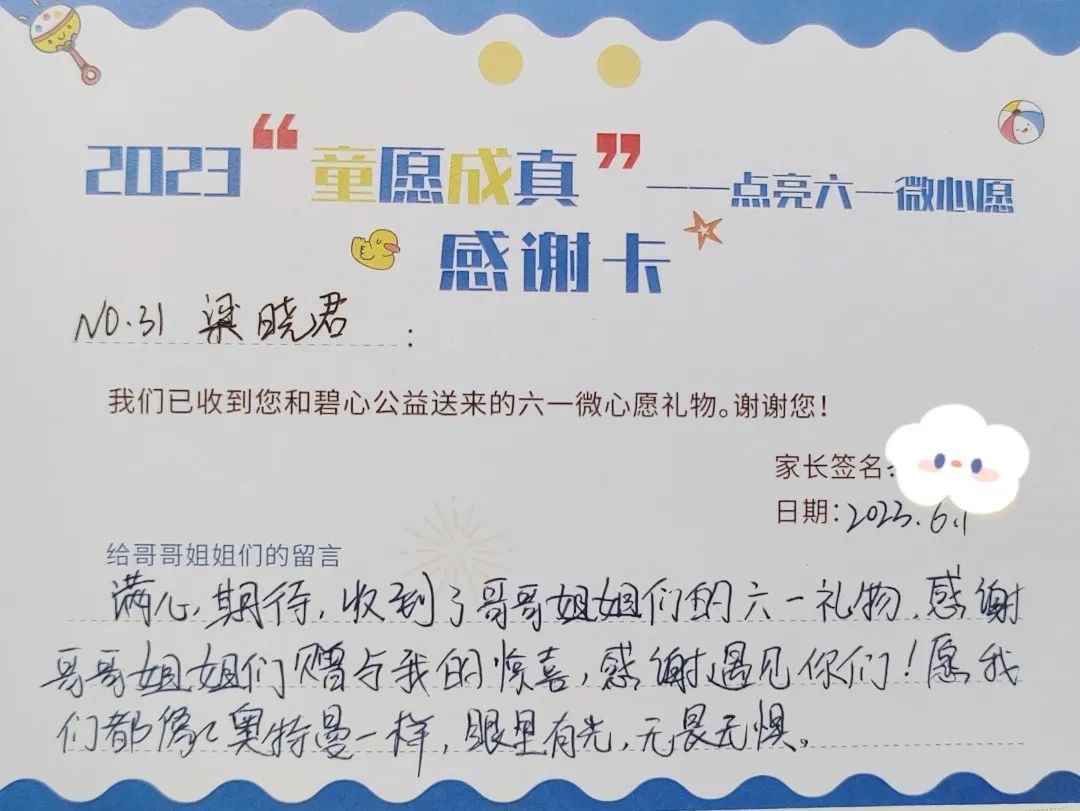 2023“童愿成真”——点亮六一微心愿
感谢卡
NO.31 梁晓君 :
我们已收到您和碧心公益送来的六一微心愿礼物。谢谢您!
家长签名:
日期:2023.6.1
给哥哥姐姐们的留言
满心,期待,收到了哥哥姐姐们的六一礼物,感谢
哥哥姐姐们赠与我的惊喜,感谢遇见你们!愿我
们都像奥特曼一样,眼里有光,无畏无惧。